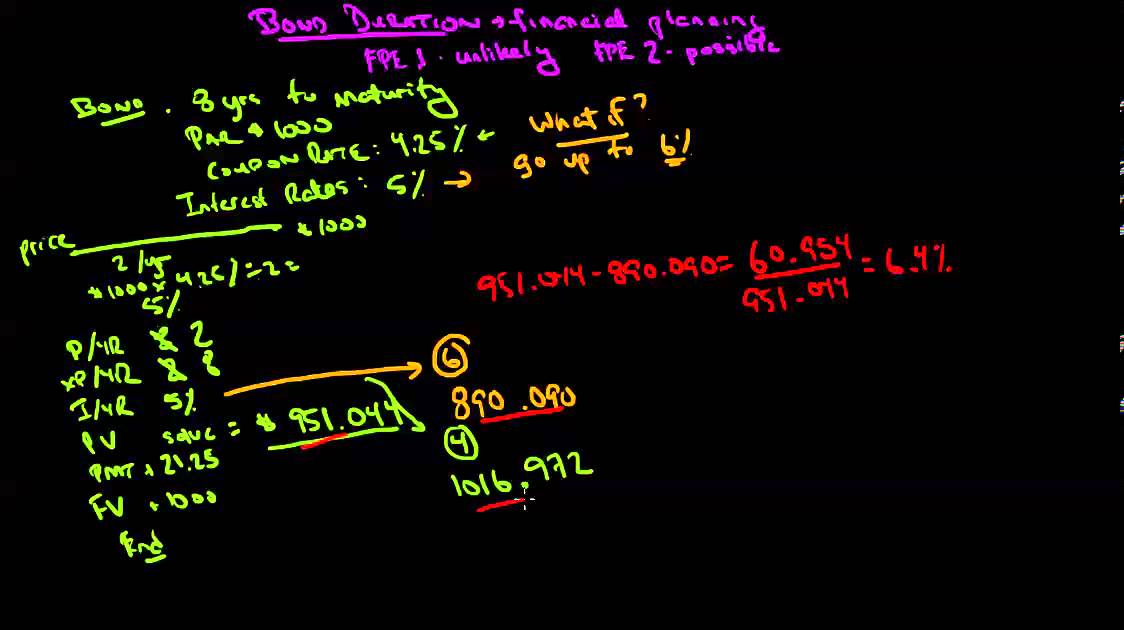 BOND DURATION → financial planning
FPE 1 - unlikely FPE 2 - possible
BOND . 8 yrs to maturity
PAR $1000
COUPON RATE: 4.25% ←
Interest Rates: 5% →
What if?
go up to 6%
price
$1000
2/yr
$1000 x 4.25% = 2 =
5%
951.044 - 890.090 = 60.954 / 951.044 = 6.4%
P/YR 2
xP/YR 8
I/YR 5%
PV solve = $951.044
PMT + 21.25
FV + 1000
End
6
890.090
4
1016.972